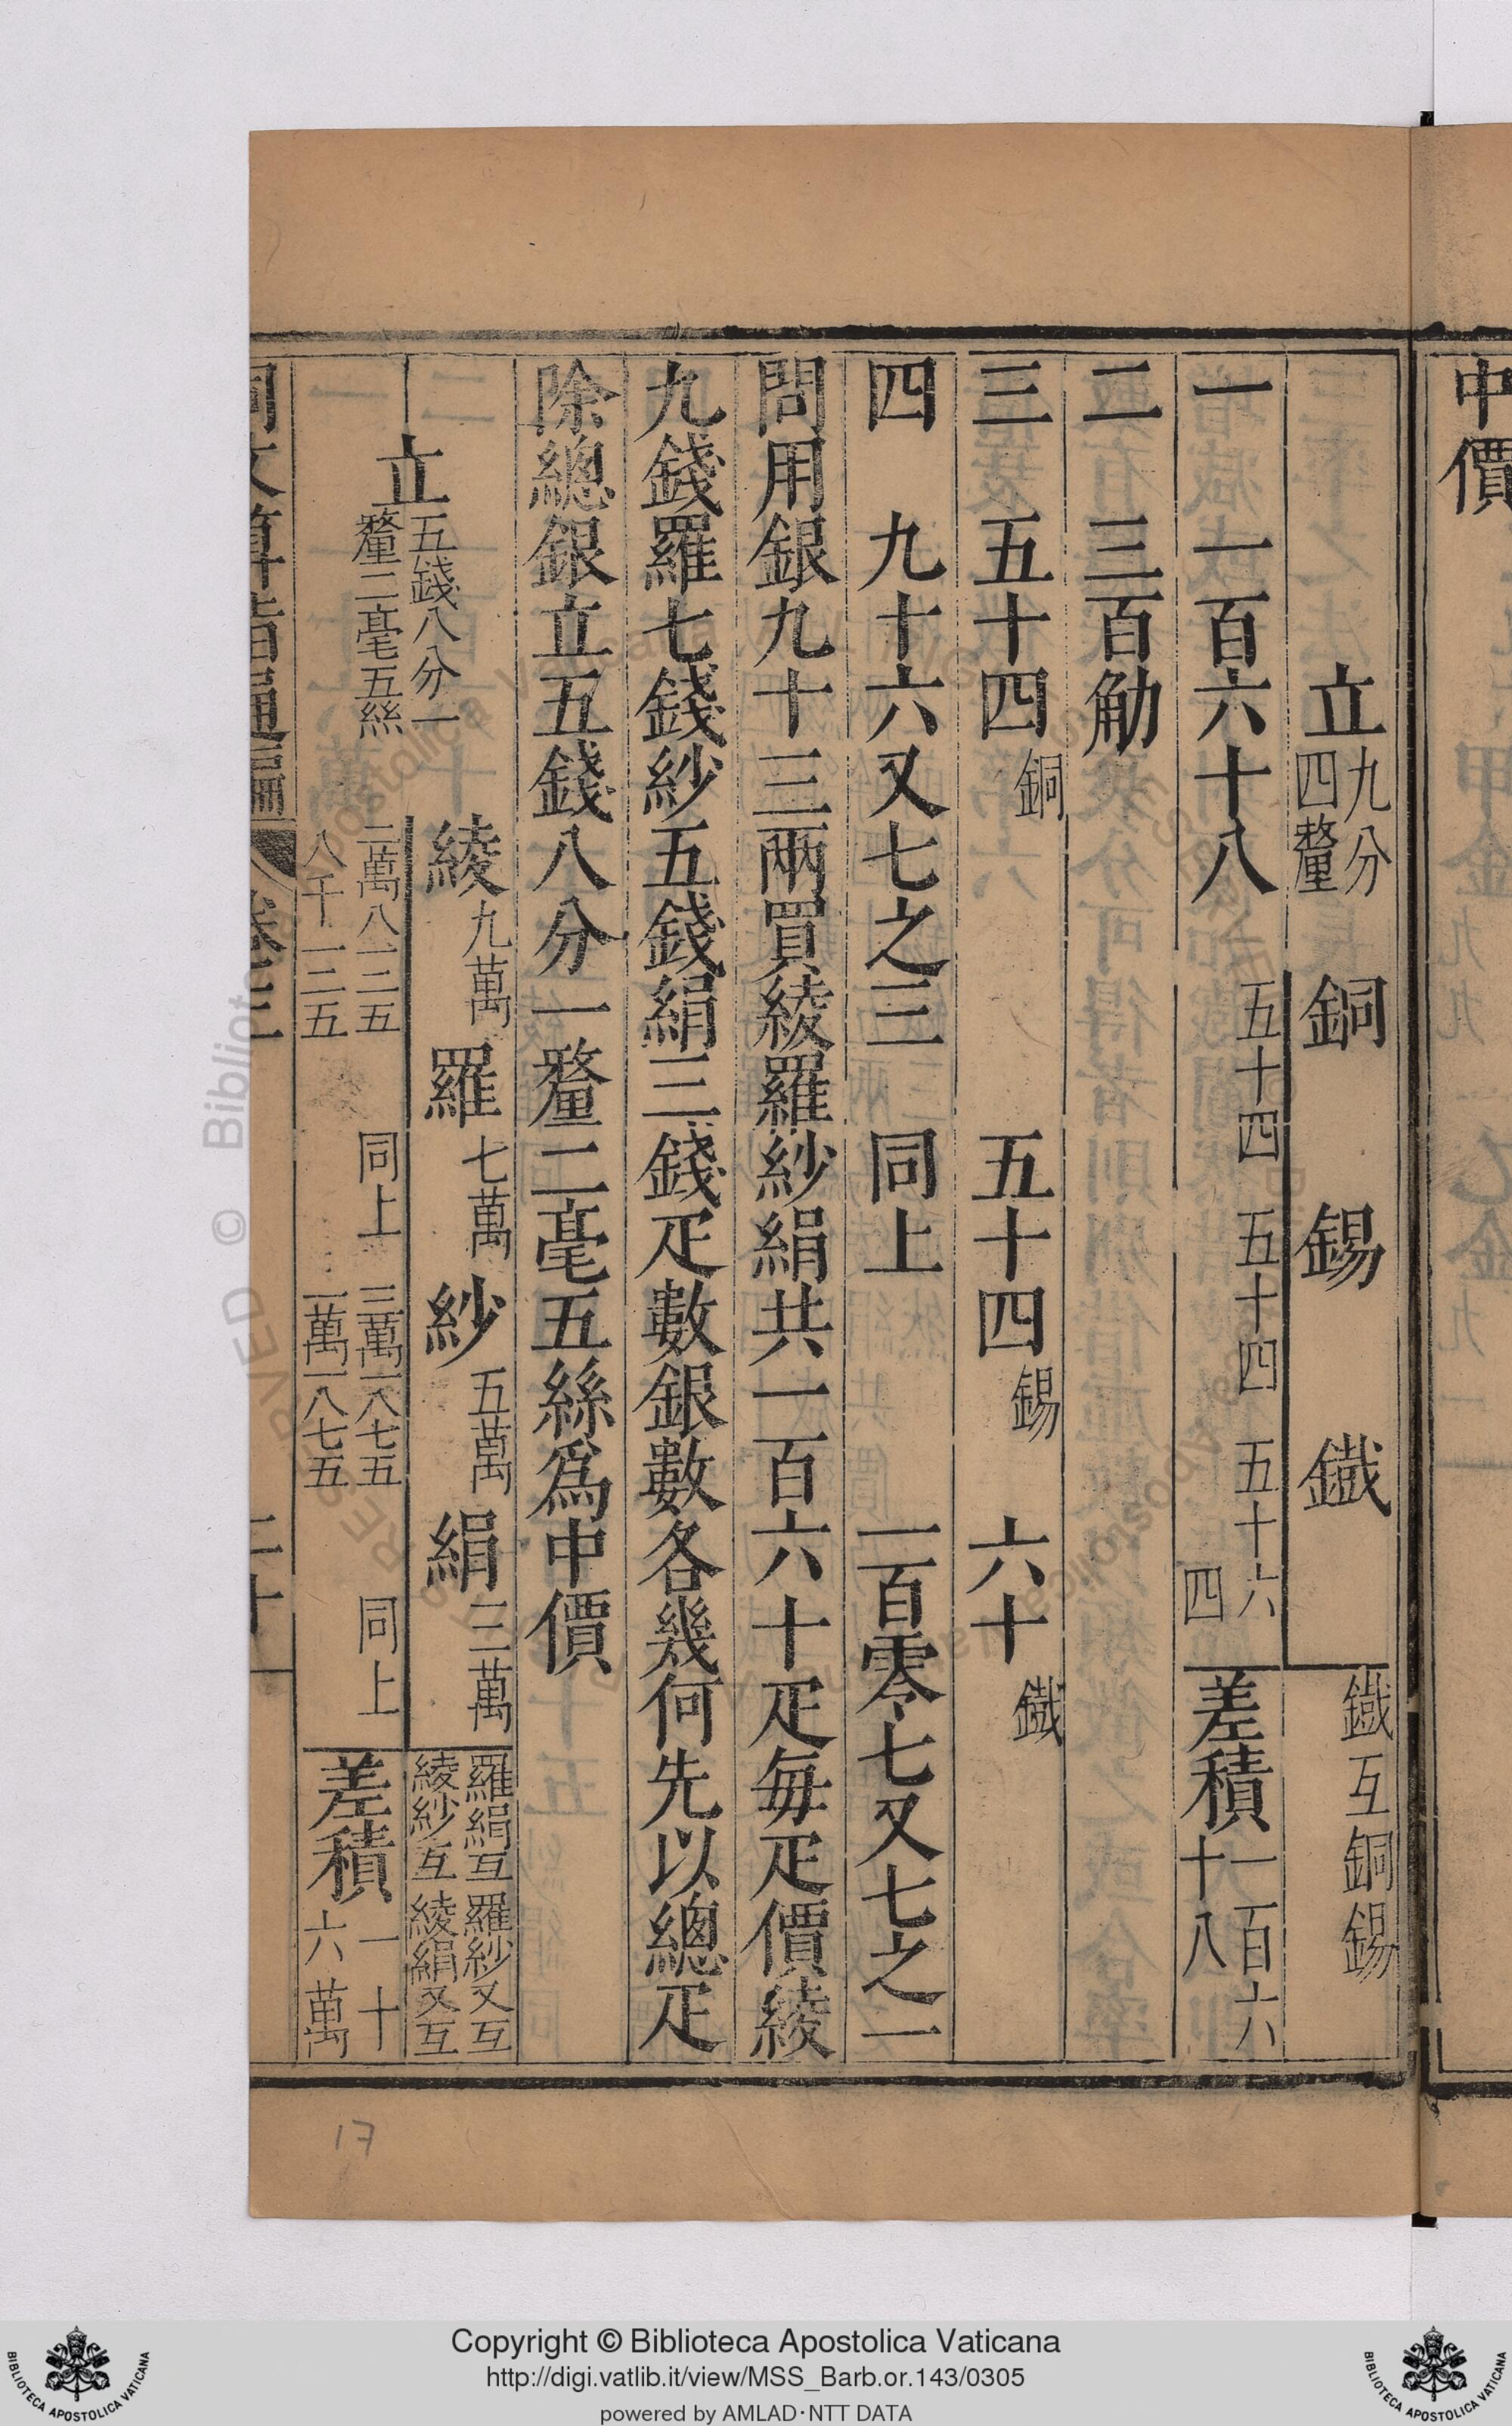 中價
立 九分四釐 銅 錫 鐵 鐵互銅錫
一 一百六十八 五十四 五十四 五十六 四 差積 一百六十八
二 三百觔
三 五十四 銅 五十四 錫 六十 鐵
四 九十六又七之三 同上 一百零七又七之一
問用銀九十三兩買綾羅紗絹共一百六十疋每疋價綾
九錢羅七錢紗五錢絹三錢疋數銀數各幾何先以總疋
除總銀立五錢八分一釐二毫五絲爲中價
綾 九萬 羅 七萬 紗 五萬 絹 三萬 羅絹互 羅紗又互 綾紗互 綾絹又互
立 五錢八分一釐二毫五絲
二萬八一二五 同上 三萬一八七五 同上 差積 一十六萬
八千一二五 一萬一八七五
同文算指通編 卷三 二十
17
Copyright © Biblioteca Apostolica Vaticana
http://digi.vatlib.it/view/MSS_Barb.or.143/0305
powered by AMLAD·NTT DATA
BIBLIOTECA APOSTOLICA VATICANA
BIBLIOTECA APOSTOLICA VATICANA